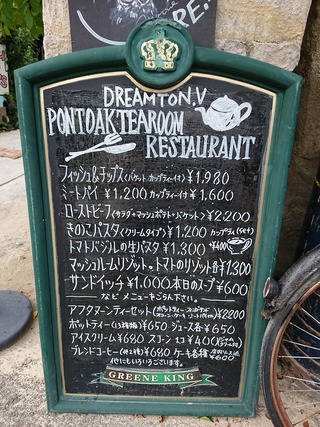 RE.
DREAMTON.V
PONTOAK TEAROOM
RESTAURANT
フィッシュ&チップス(バケット・カップティー付)¥1,980
ミートパイ ¥1,200 カップティー付 ¥1,600
ローストビーフ(サラダ・マッシュポテト・バケット)¥2200
きのこパスタ(クリームタイプ)¥1,200 カップティー(set)
トマトバジルの生パスタ ¥1,300 +¥400
マッシュルームリゾット・トマトのリゾット各¥1,300
サンドイッチ ¥1,000 本日のスープ ¥600
など メニューをごらん下さい。
アフタヌーンティーセット ¥2200
ポットティー(13種類)¥650 ジュース各¥650
アイスクリーム¥680 スコーン 1コ ¥400
ブレンドコーヒー ¥680 ケーキ各種
¥600
他にもいろいろございます。
GREENE KING